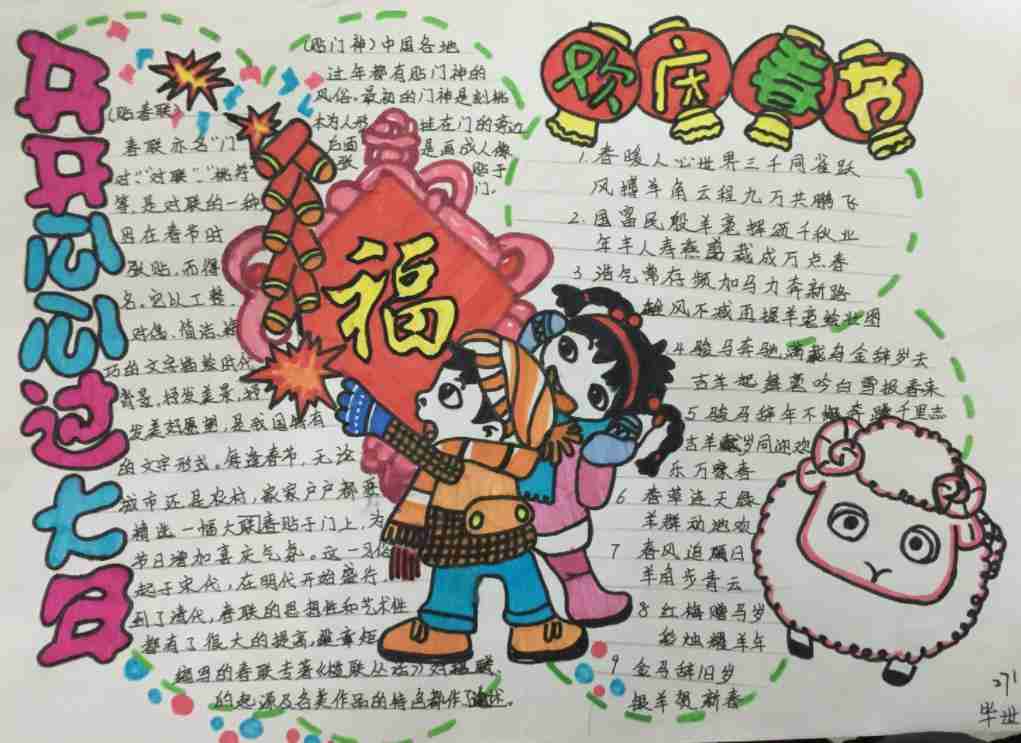 开开心心过大年
(贴春联)
春联亦名"门
对""对联""桃符"
等,是对联的一种
因在春节时
张贴,而得
名。它以工整、
对偶、简洁、精
巧的文字描绘时代
背景、抒发美景、抒
发美好愿望,是我国特有
的文字形式。每逢春节,无论
城市还是农村,家家户户都要
精选一幅大红春贴于门上,为
节日增加喜庆气氛。这一习俗
起于宋代,在明代开始盛行,
到了清代,春联的思想性和艺术性
都有了很大的提高,梁章矩
编写的春联专著《楹联丛话》对楹联
的起源及各类作品的特色都作了论述。
(贴门神)中国各地
过年都有贴门神的
风俗。最初的门神是刻桃
木为人形 挂在门的旁边
后面 是画成人像
张 贴于
门。
福
欢庆春节
1. 春暖人心世界三千同雀跃
风搏羊角云程九万共鹏飞
2. 国富民殷羊毫挥颂千秋业
年丰人寿燕剪裁成万点春
3 浩气常存频加马力奔新路
雄风不减再握羊毫绘壮图
4. 骏马奔驰满载乌金辞岁去
吉羊起舞高吟白雪报春来
5 骏马辞年不懈奔腾千里志
吉羊 岁同迎欢
乐万家春
6 春草连天碧
羊群动地欢
7 春风追 日
羊角步青云
8 红梅赠马岁
彩烛耀羊年
9 金马辞旧岁
银羊贺新春
271
毕世